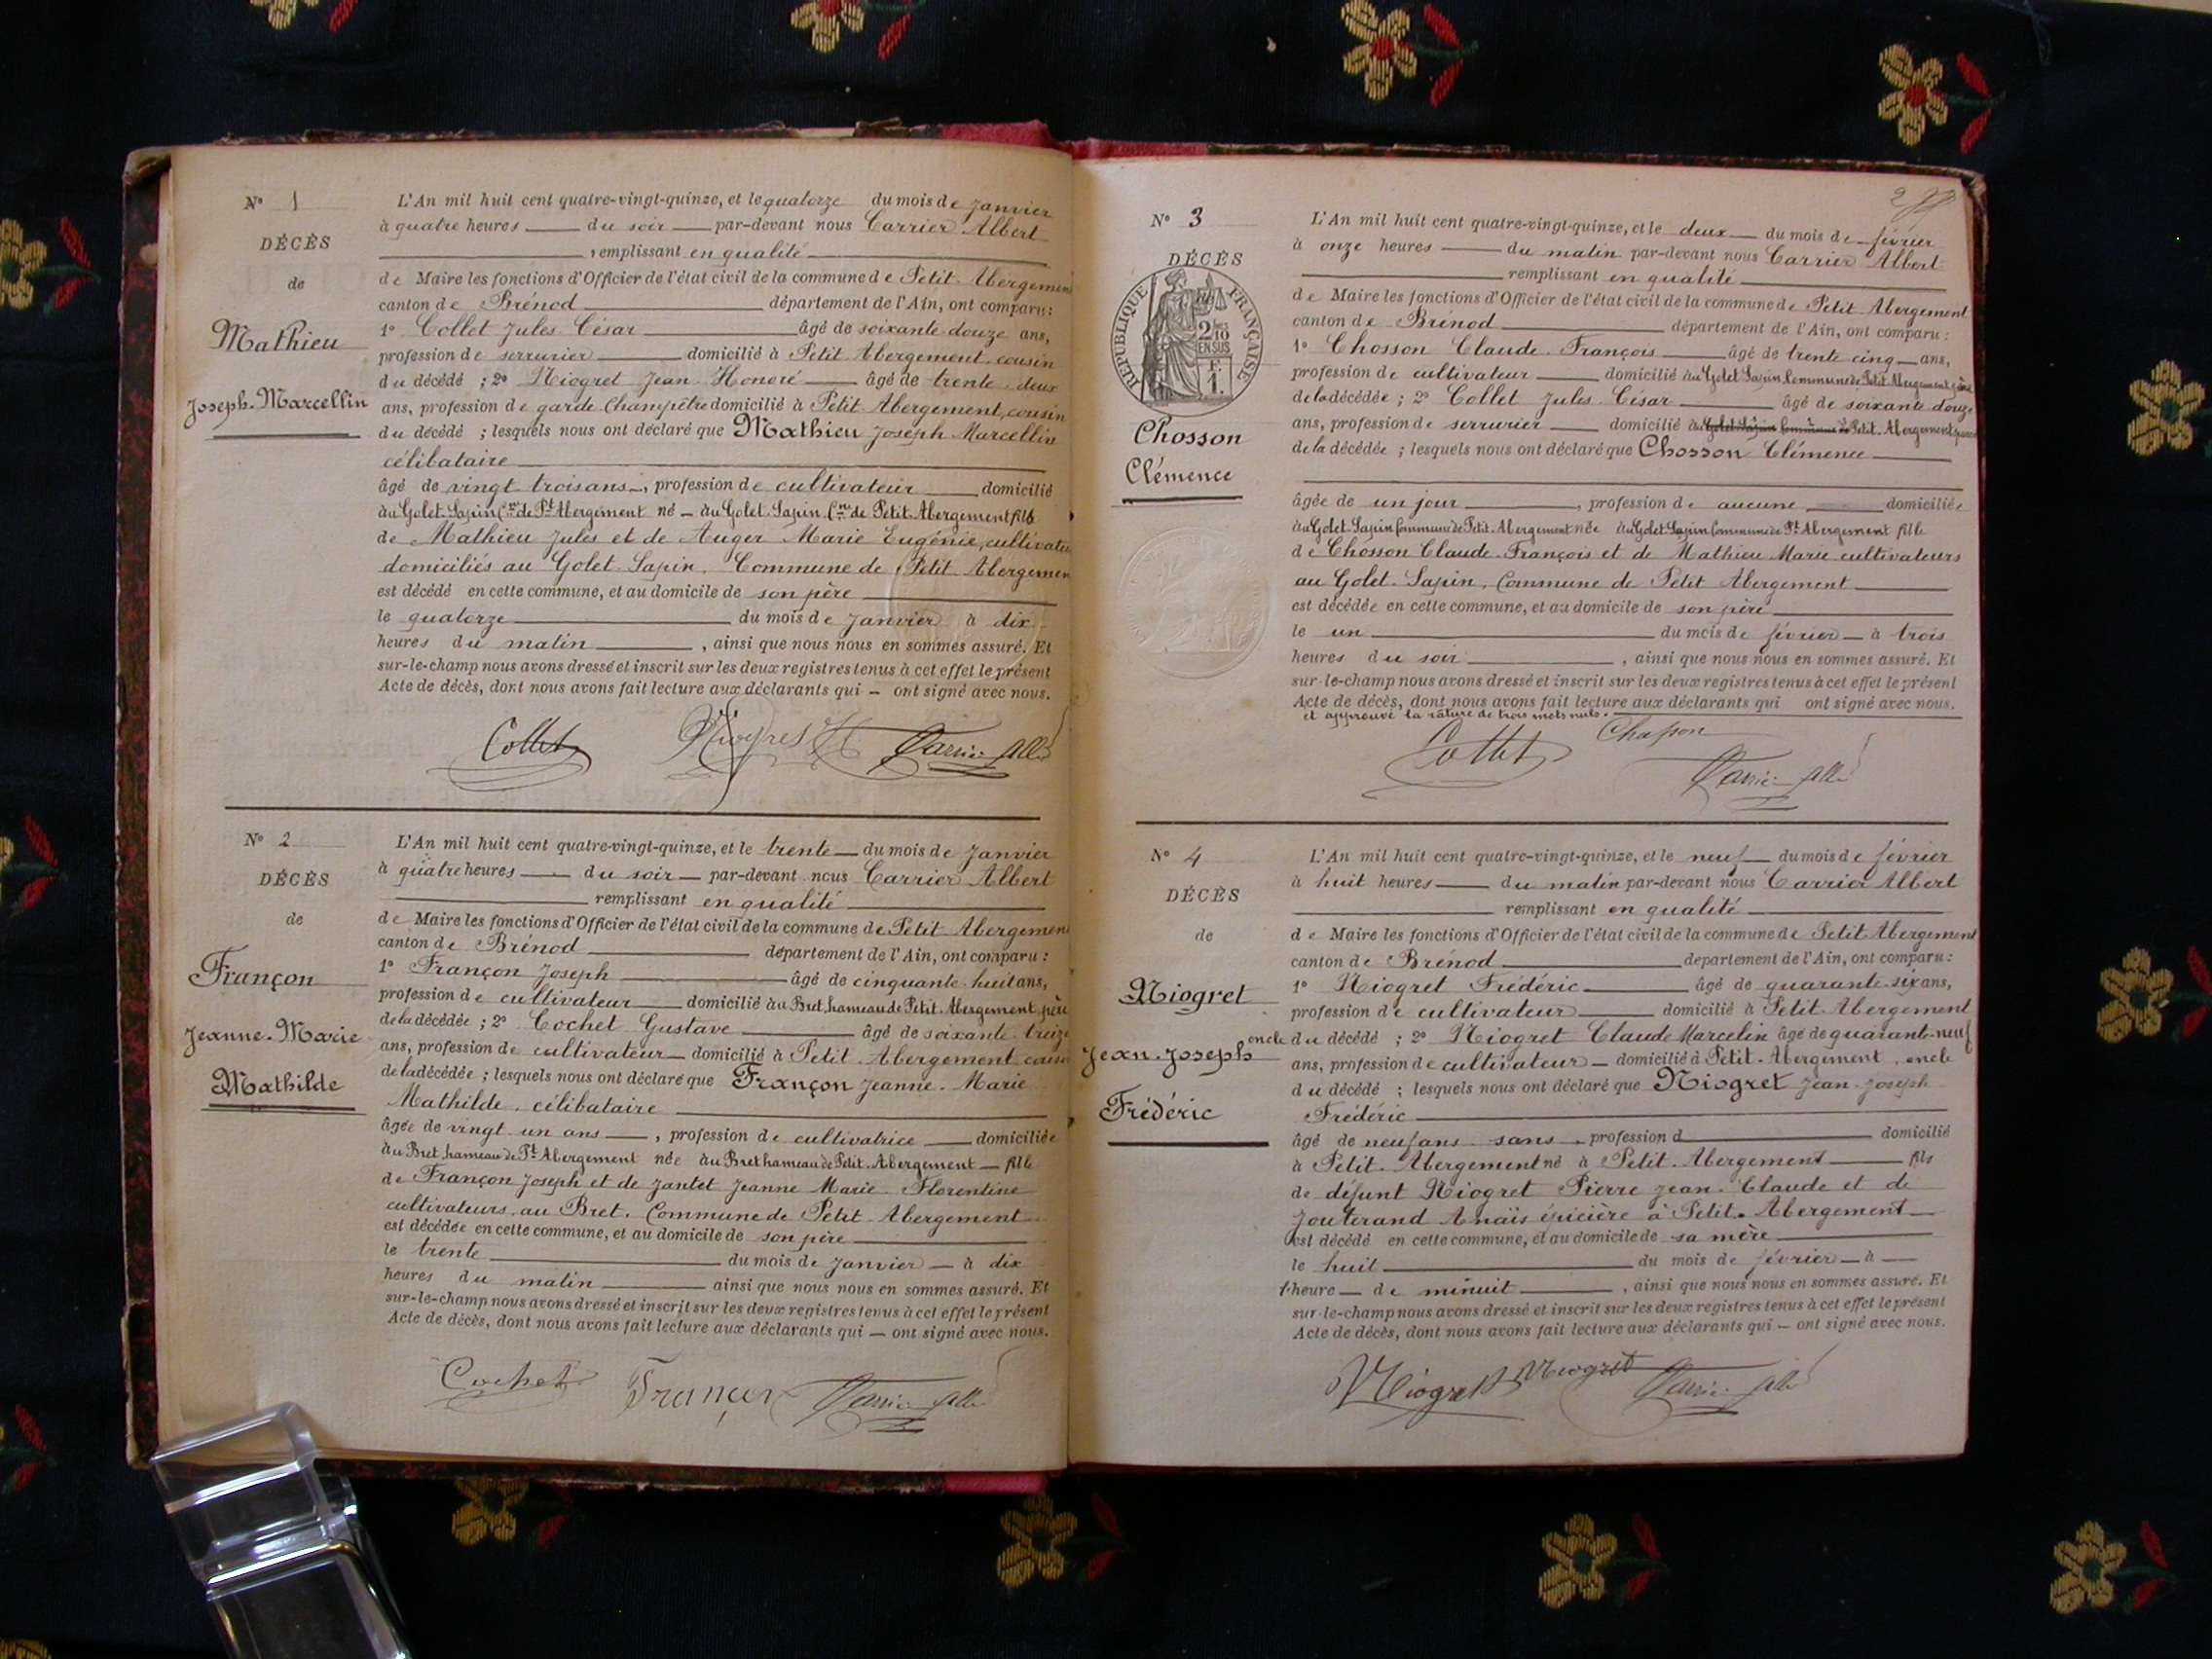 N° 1
DÉCÈS
de
Mathieu
Joseph-Marcellin
L'An mil huit cent quatre-vingt-quinze, et le quatorze du mois de Janvier
à quatre heures du soir par-devant nous Carrier Albert
remplissant en qualité
de Maire les fonctions d'Officier de l'état civil de la commune de Petit Abergement
canton de Brénod département de l'Ain, ont comparu :
1° Collet Jules César âgé de soixante douze ans,
profession de serrurier domicilié à Petit Abergement cousin
du décédé ; 2° Niogret Jean Honoré âgé de trente deux
ans, profession de garde-champêtre domicilié à Petit Abergement, cousin
du décédé ; lesquels nous ont déclaré que Mathieu Joseph Marcellin
célibataire
âgé de vingt trois ans, profession de cultivateur domicilié
au Golet-Sapin Cne de Pt Abergement né au Golet-Sapin Cne de Petit Abergement fils
de Mathieu Jules et de Auger Marie Eugénie, cultivateu
domiciliés au Golet-Sapin. Commune de Petit Abergemen
est décédé en cette commune, et au domicile de son père
le quatorze du mois de Janvier à dix
heures du matin , ainsi que nous nous en sommes assuré. Et
sur-le-champ nous avons dressé et inscrit sur les deux registres tenus à cet effet le présent
Acte de décès, dont nous avons fait lecture aux déclarants qui — ont signé avec nous.
Collet Niogret JH Carrier Albt
N° 2
DÉCÈS
de
Françon
Jeanne-Marie
Mathilde
L'An mil huit cent quatre-vingt-quinze, et le trente du mois de Janvier
à quatre heures du soir par-devant nous Carrier Albert
remplissant en qualité
de Maire les fonctions d'Officier de l'état civil de la commune de Petit Abergement
canton de Brénod département de l'Ain, ont comparu :
1° Françon Joseph âgé de cinquante-huit ans,
profession de cultivateur domicilié au Bret, hameau de Petit Abergement, père
de la décédée ; 2° Cochet Gustave âgé de soixante-treize
ans, profession de cultivateur domicilié à Petit Abergement cousin
de la décédée ; lesquels nous ont déclaré que Françon Jeanne-Marie
Mathilde, célibataire
âgée de vingt un ans , profession de cultivatrice domiciliée
au Bret, hameau de Pt Abergement née au Bret hameau de Petit Abergement fille
de Françon Joseph et de Jantet Jeanne Marie Florentine
cultivateurs au Bret. Commune de Petit Abergement
est décédée en cette commune, et au domicile de son père
le trente du mois de Janvier à dix
heures du matin ainsi que nous nous en sommes assuré. Et
sur-le-champ nous avons dressé et inscrit sur les deux registres tenus à cet effet le présent
Acte de décès, dont nous avons fait lecture aux déclarants qui — ont signé avec nous.
Cochet Françon Carrier Albt
2
N° 3
DÉCÈS
de
RÉPUBLIQUE FRANÇAISE
2/10
EN SUS
1F
Chosson
Clémence
L'An mil huit cent quatre-vingt-quinze, et le deux du mois de février
à onze heures du matin par-devant nous Carrier Albert
remplissant en qualité
de Maire les fonctions d'Officier de l'état civil de la commune de Petit Abergement
canton de Brénod département de l'Ain, ont comparu :
1° Chosson Claude-François âgé de trente cinq ans,
profession de cultivateur domicilié au Golet Sapin Commune de Petit Abergement père
de la décédée ; 2° Collet Jules César âgé de soixante douze
ans, profession de serrurier domicilié à Golet Sapin Commune de Petit-Abergement
de la décédée ; lesquels nous ont déclaré que Chosson Clémence
âgée de un jour , profession de aucune domiciliée
au Golet-Sapin Commune de Petit-Abergement née au Golet-Sapin Commune de Pt Abergement fille
de Chosson Claude-François et de Mathieu Marie cultivateurs
au Golet-Sapin, Commune de Petit Abergement
est décédée en cette commune, et au domicile de son père
le un du mois de février à trois
heures du soir , ainsi que nous nous en sommes assuré. Et
sur-le-champ nous avons dressé et inscrit sur les deux registres tenus à cet effet le présent
Acte de décès, dont nous avons fait lecture aux déclarants qui ont signé avec nous.
et approuvé la rature de trois mots nuls.
Collet Chosson Carrier Albt
N° 4
DÉCÈS
de
Niogret
Jean-Joseph
Frédéric
L'An mil huit cent quatre-vingt-quinze, et le neuf du mois de février
à huit heures du matin par-devant nous Carrier Albert
remplissant en qualité
de Maire les fonctions d'Officier de l'état civil de la commune de Petit Abergement
canton de Brénod département de l'Ain, ont comparu :
1° Niogret Frédéric âgé de quarante-six ans,
profession de cultivateur domicilié à Petit Abergement
oncle du décédé ; 2° Niogret Claude Marcelin âgé de quarante-neuf
ans, profession de cultivateur domicilié à Petit-Abergement, oncle
du décédé ; lesquels nous ont déclaré que Niogret Jean-Joseph
Frédéric
âgé de neuf ans sans profession d domicilié
à Petit-Abergement né à Petit-Abergement fils
de défunt Niogret Pierre Jean-Claude et de
Jouterand Anaïs épicière à Petit-Abergement
est décédé en cette commune, et au domicile de sa mère
le huit du mois de février à
1 heure de minuit , ainsi que nous nous en sommes assuré. Et
sur-le-champ nous avons dressé et inscrit sur les deux registres tenus à cet effet le présent
Acte de décès, dont nous avons fait lecture aux déclarants qui — ont signé avec nous.
Niogret Niogret Carrier Albt